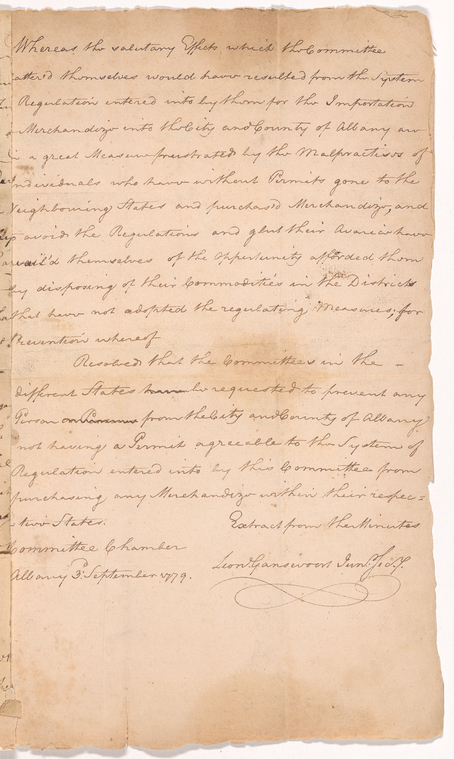 Whereas the salutary Effects which the Committee
attered themselves would have resulted from the System
Regulation entered into by them for the Importation
Merchandize into the City and County of Albany are
in a great Measure frustrated by the Malpractises of
Individuals who have without Permits gone to the
Neighbouring States and purchas'd Merchandize, and
to avoid the Regulations and glut their Avarice have
avail'd themselves of the Opportunity afforded them
by disposing of their Commodities in the Districts
that have not adopted the regulating Measures; for
Prevention whereof
Resolved that the Committees in the –
different States have be requested to prevent any
Person from the City and County of Albany
not having a Permit agreeable to the System of
Regulation entered into by this Committee from
purchasing any Merchandize within their respec=
=tive States. Extract from the Minutes
Committee Chamber
Albany 3d. September 1779. Leond. Gansevoort Junr. Secy.